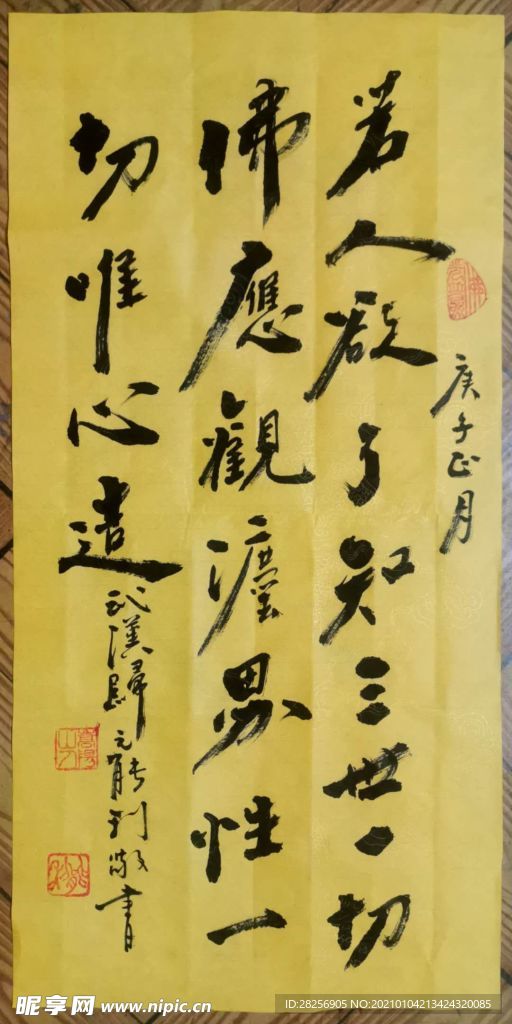 庚子正月
若人欲了知三世一切
佛應觀灋界性一
切唯心造
武漢歸元能利敬書
昵享网 www.nipic.cn
ID:28256905 NO:20210104213424320085